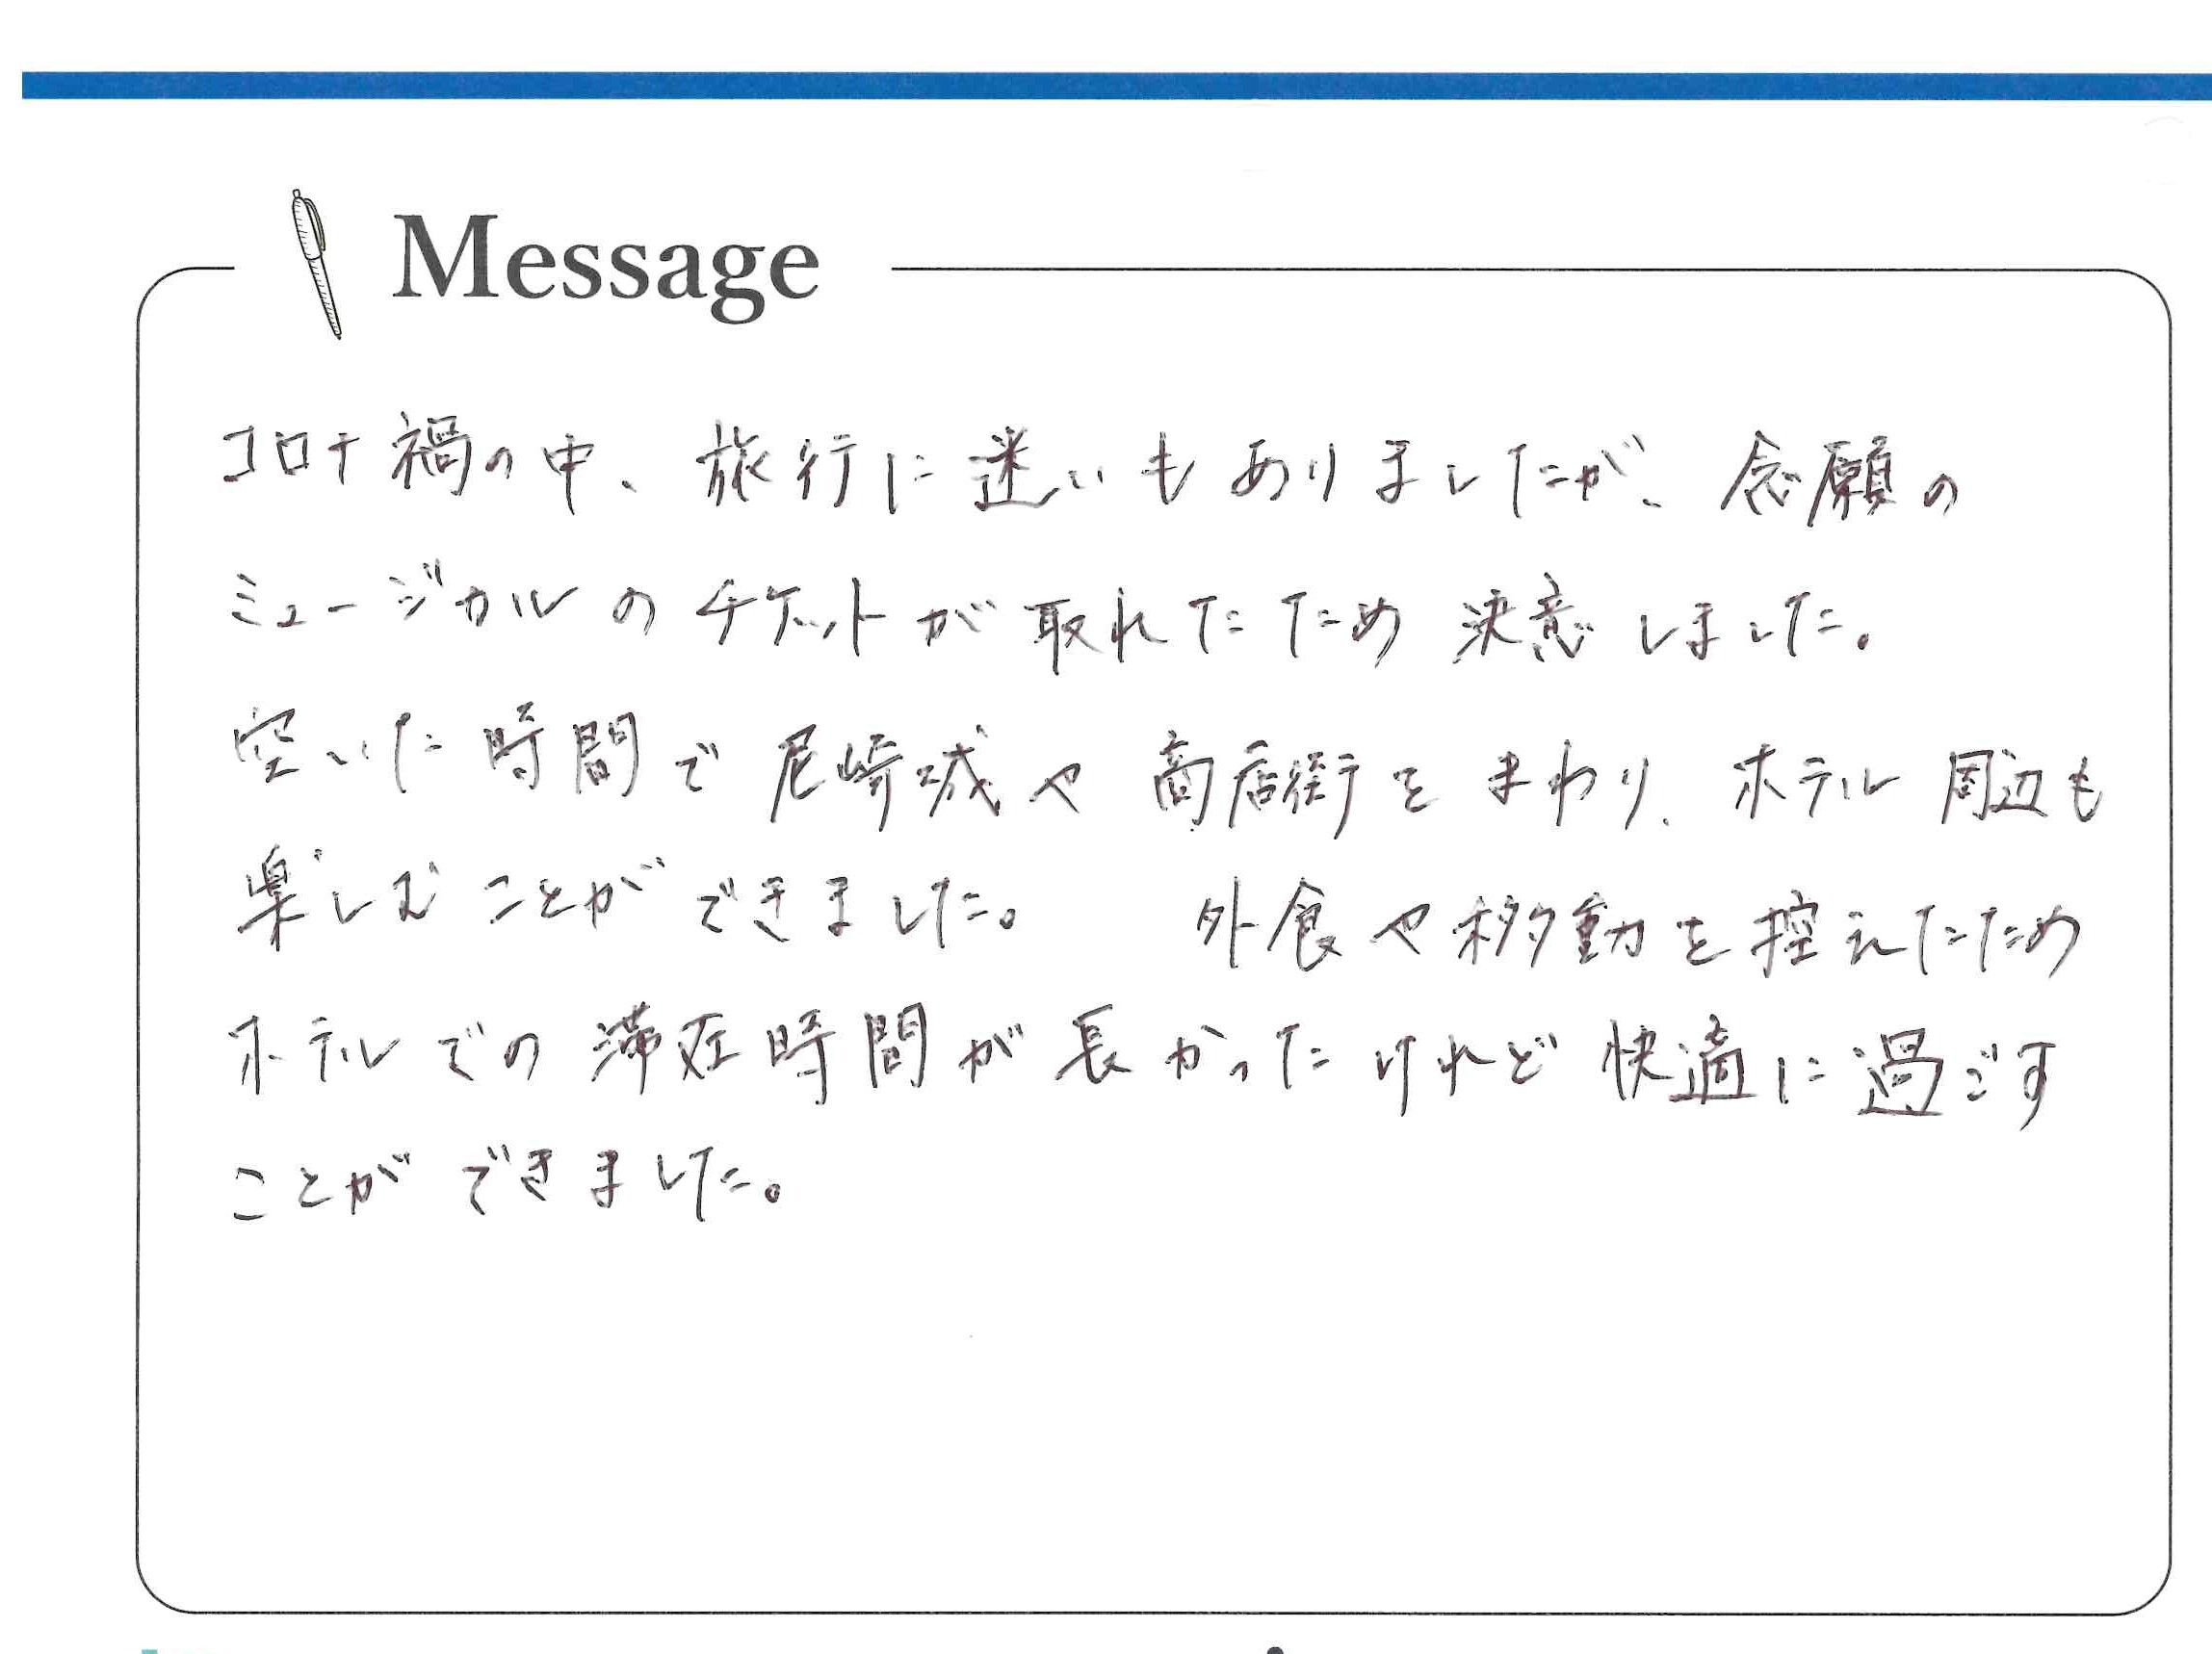 Message
コロナ禍の中、旅行に迷いもありましたが、念願の
ミュージカルのチケットが取れたため決意しました。
空いた時間で尼崎城や商店街をまわり、ホテル周辺も
楽しむことができました。 外食や移動を控えたため
ホテルでの滞在時間が長かったけれど快適に過ごす
ことができました。